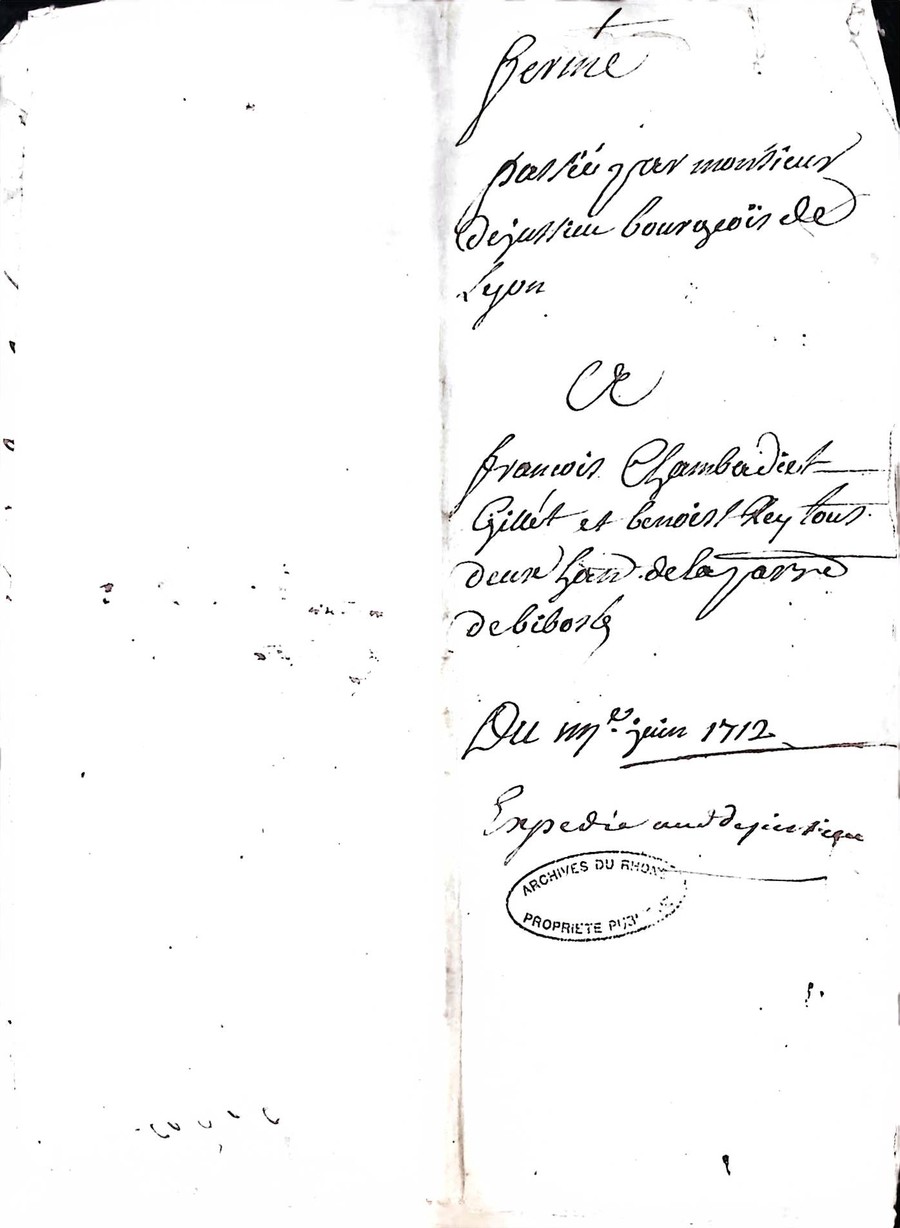 ferme
passée par monsieur
dejussieu bourgeois de
Lyon
A
francois Chambadiet
Gillét et benoist Rey tous
deux hãns de la parre
de bibost
Du iiij.e juin 1712
Expedié aud dejussieu
ARCHIVES DU RHONE
PROPRIETE PUBLIQUE